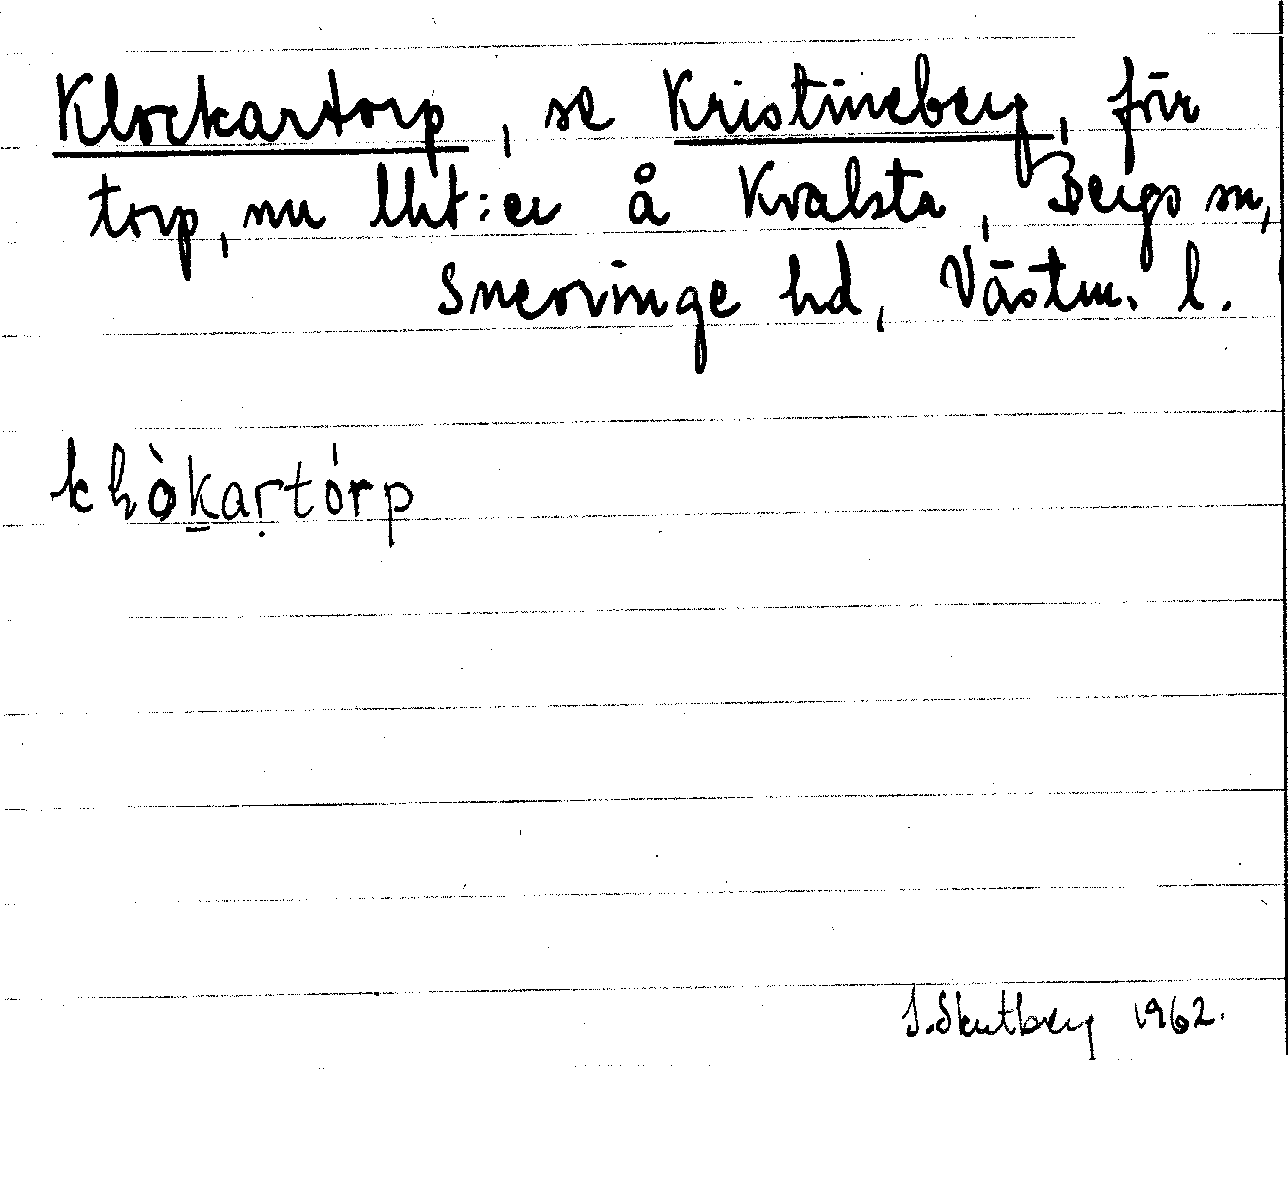 Klockartorp, se Kristineberg, förr
torp, nu lht:er å Kvalsta, Bergs sn,
Snevringe hd, Västm. l.
kɦòk̠aṛtórp
S. Skutberg 1962.